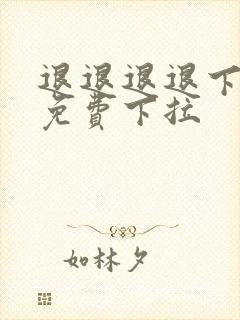 退退退退下
免費下拉
如林夕